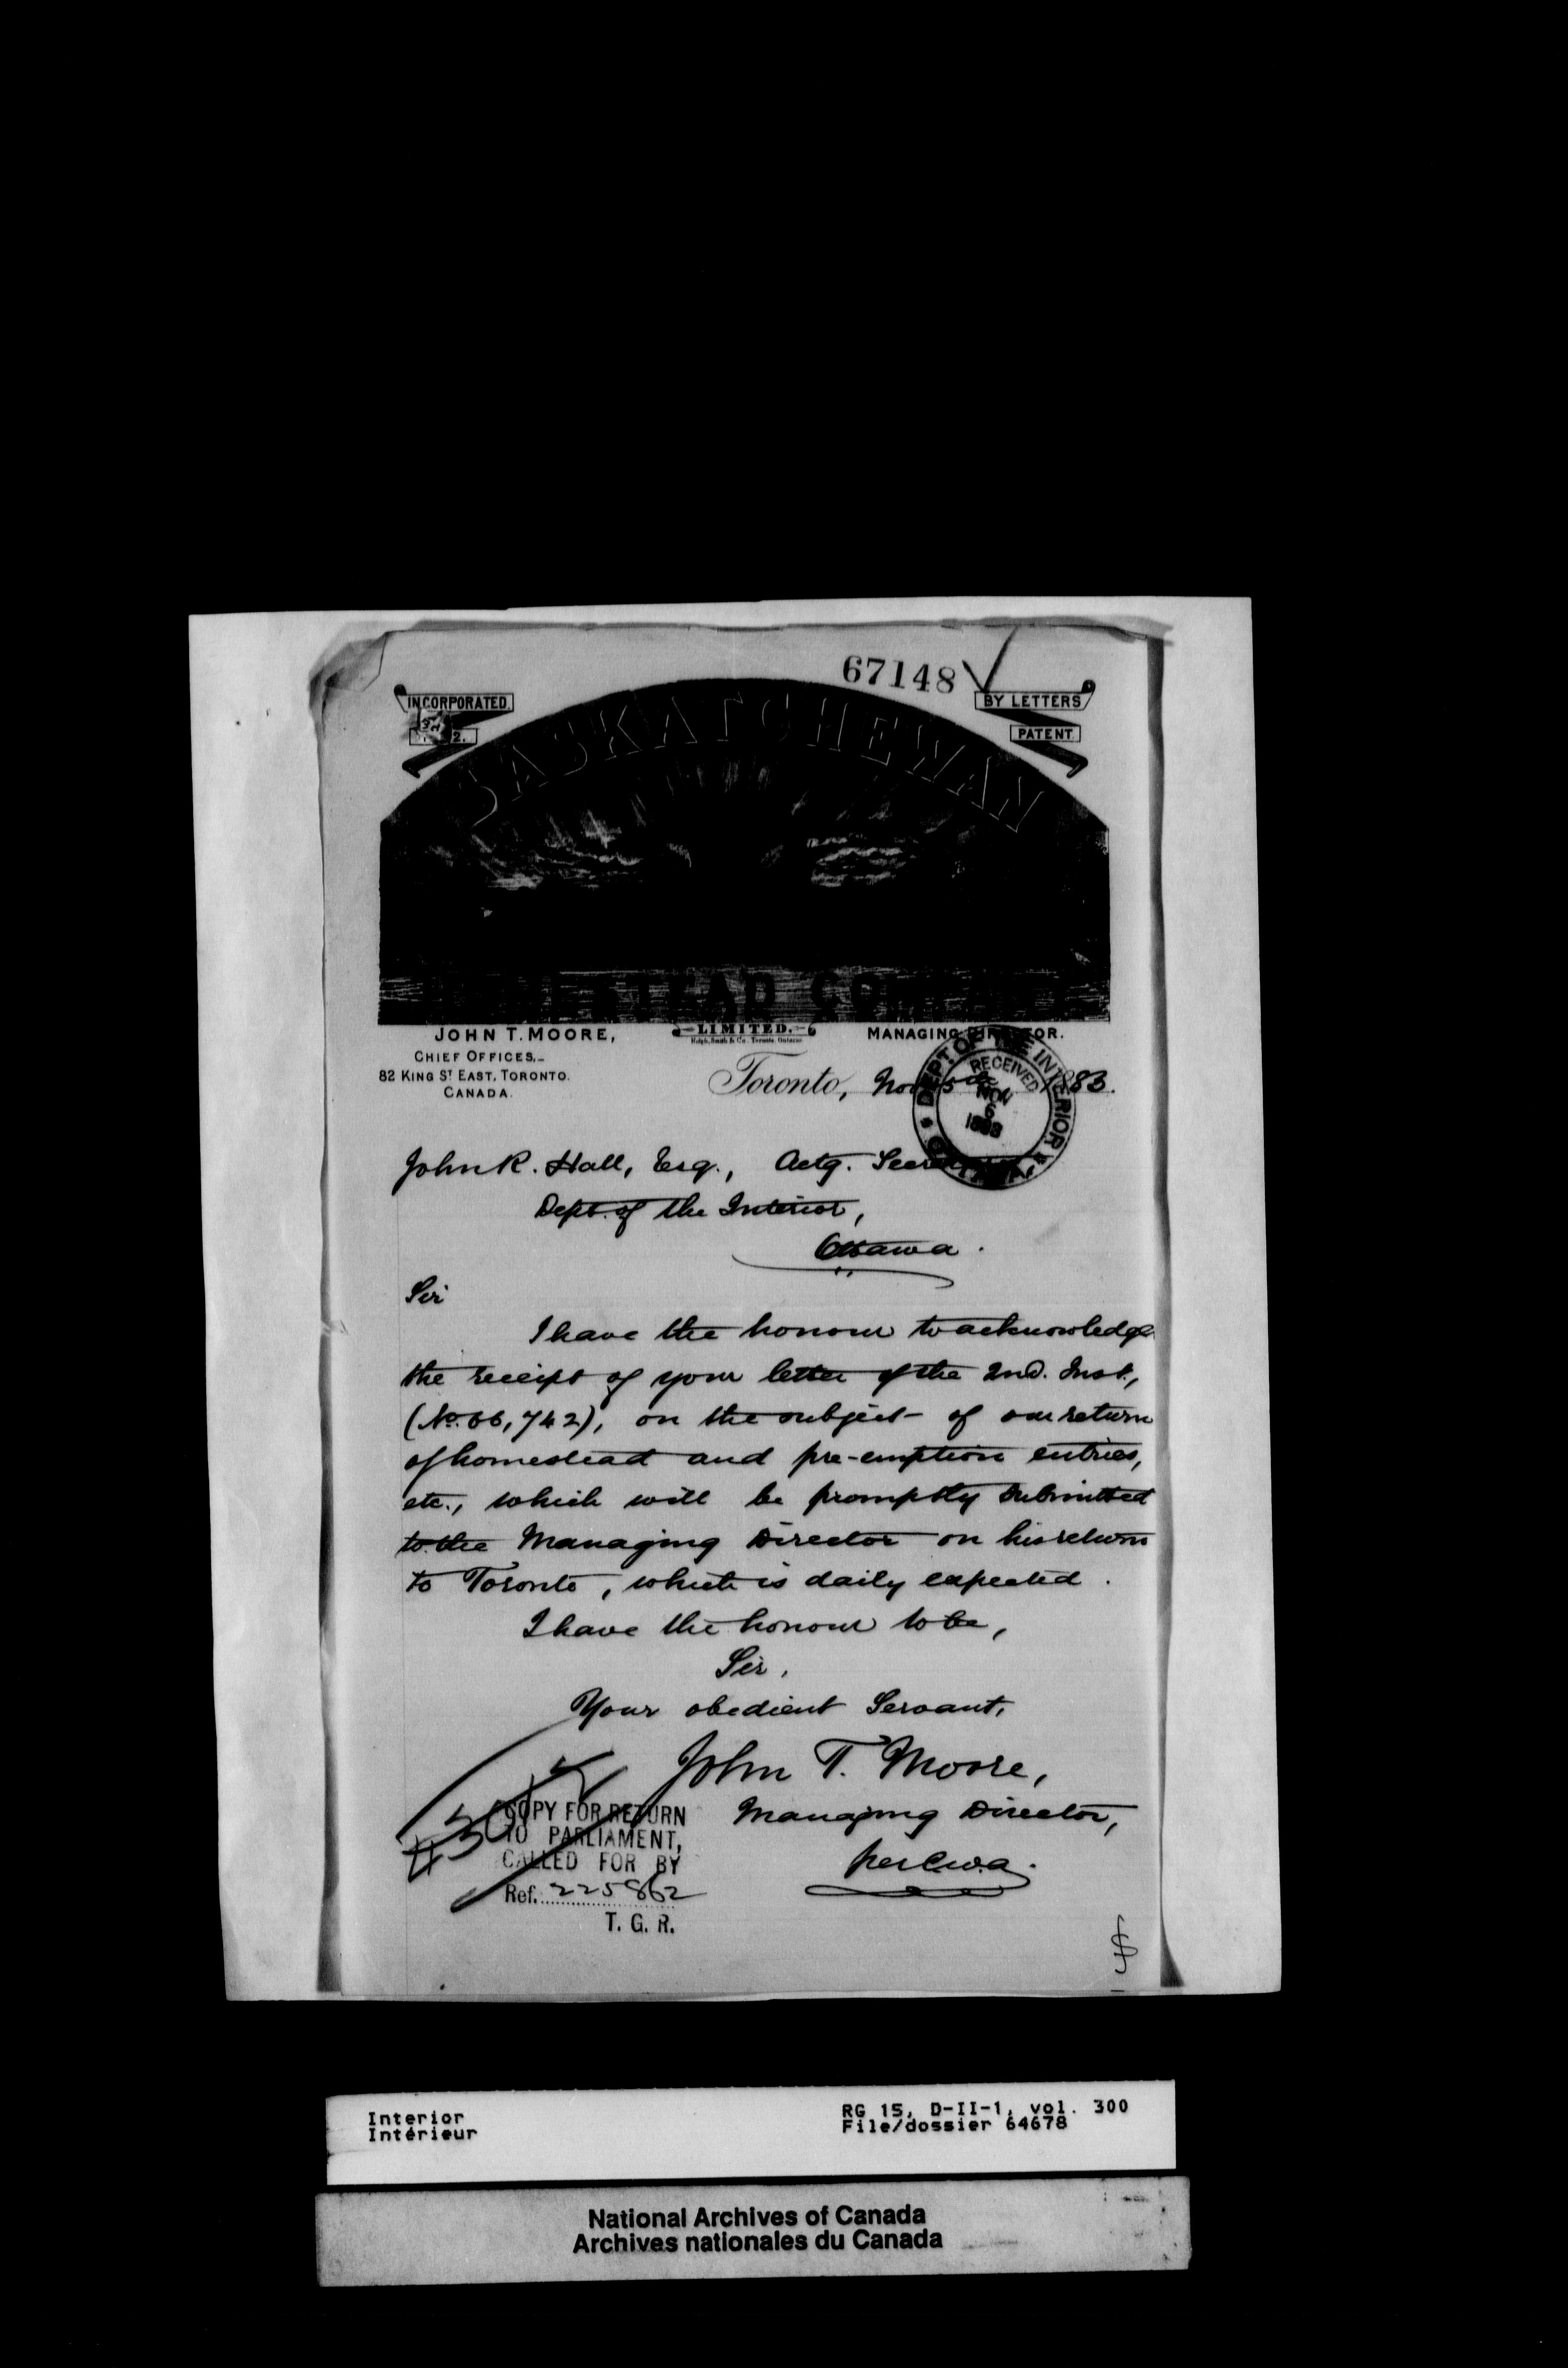 67148
INCORPORATED
BY LETTERS
PATENT
SASKATCHEWAN
HOMESTEAD COMPANY
LIMITED.
JOHN T. MOORE,
MANAGING DIRECTOR.
CHIEF OFFICES,
82 KING ST EAST, TORONTO.
CANADA.
Toronto, Nov 5th 1883.
DEPT. OF THE INTERIOR
RECEIVED
NOV
6
1883
John R. Hall, Esq., Actg. Secretary
Dept. of the Interior,
Ottawa.
Sir
I have the honour to acknowledge
the receipt of your letter of the 2nd. Inst.,
(No. 66,742), on the subject of our return
of homestead and pre-emption entries,
etc., which will be promptly submitted
to the Managing Director on his return
to Toronto, which is daily expected.
I have the honour to be,
Sir,
Your obedient Servant,
John T. Moore,
Managing Director,
per C.W.A.
COPY FOR RETURN
TO PARLIAMENT,
CALLED FOR BY
Ref. 225862
T. G. R.
Interior
Intérieur
RG 15, D-II-1, vol. 300
File/dossier 64678
National Archives of Canada
Archives nationales du Canada